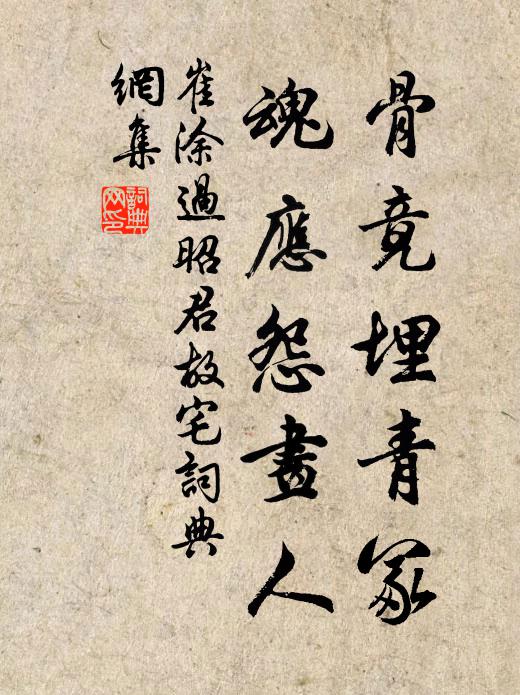 骨竟埋青冢
魂應怨畫人
崔涂過昭君故宅詞典
網集
詞典
网印